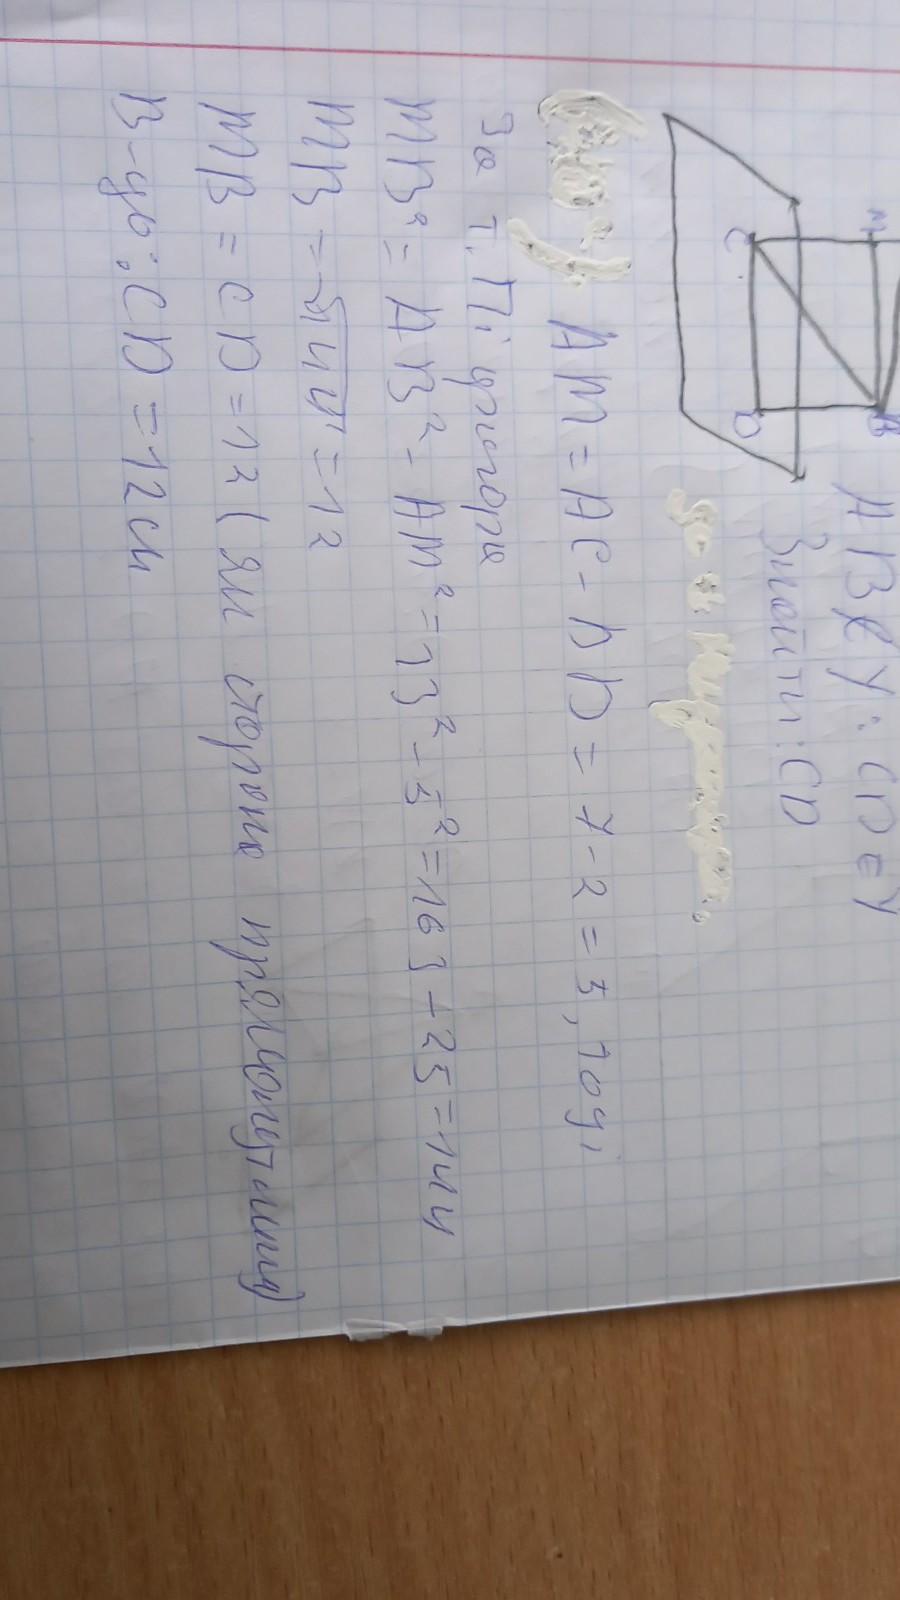 M
C
B
D
ABCY: CD ∈ Y
Знайти: CD
AM = AC - BD = 7 - 2 = 5, тоді
За т. Піфагора
MB² = AB² - AM² = 13² - 5² = 169 - 25 = 144
MB = √144 = 12
MB = CD = 12 (як сторони прямокутнику)
В-дь: CD = 12 см